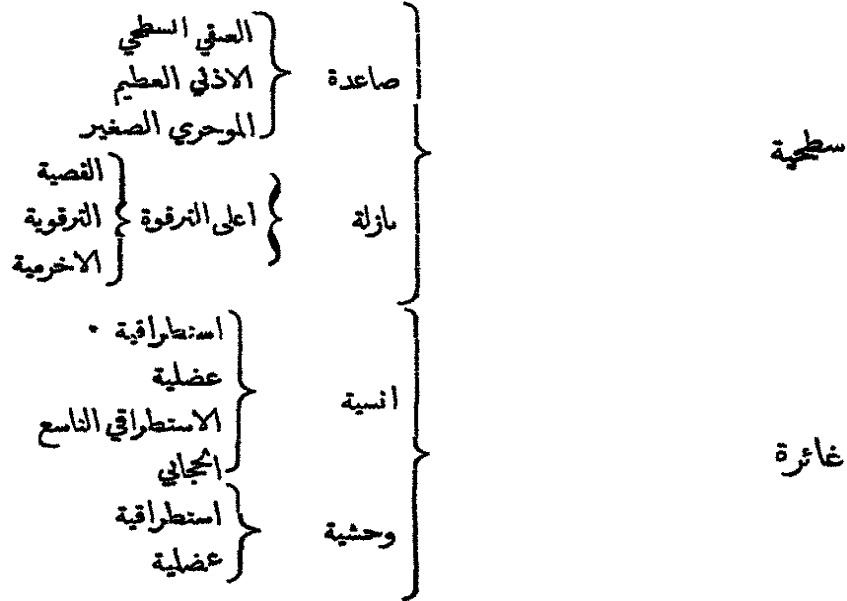 سطحية
صاعدة
العنقي السطحي
الاذني العظيم
الموخري الصغير
نازلة
أعلى الترقوة
القصية
الترقوية
الاخرمية
غائرة
انسية
استطراقية
عضلية
الاستطراقي التاسع
الحجابي
وحشية
استطراقية
عضلية